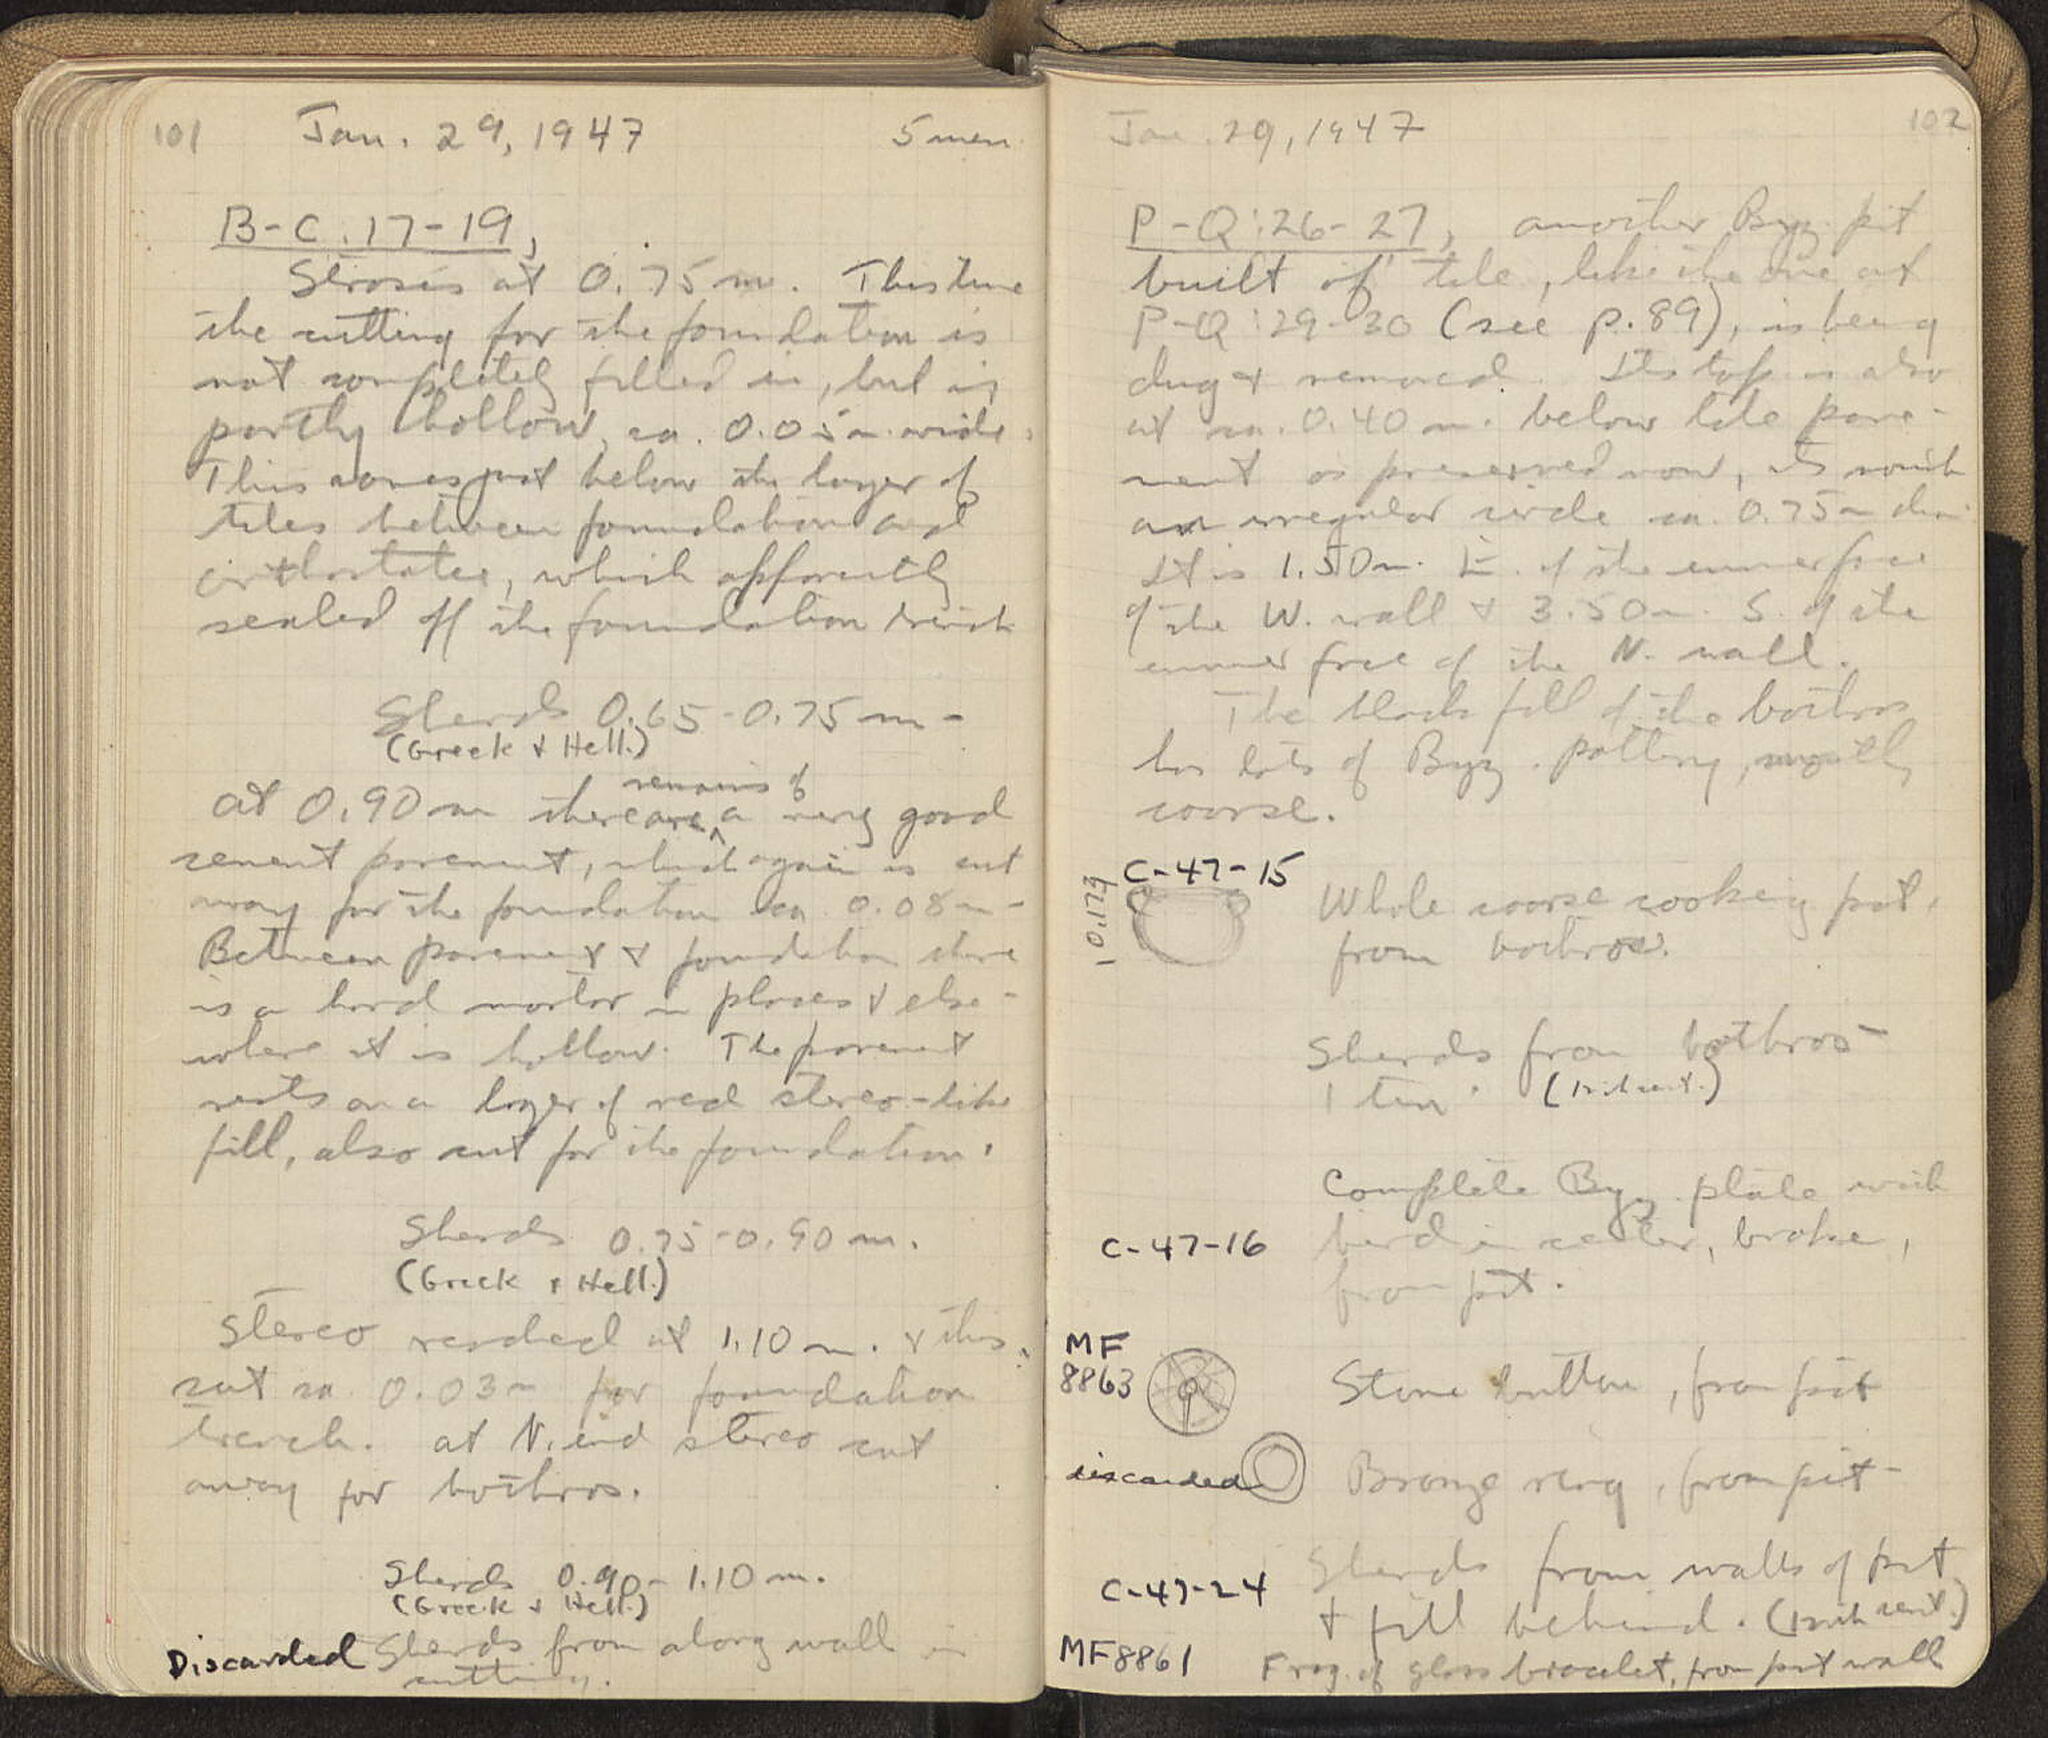 101 Jan. 29, 1947 5 men
B-C:17-19,
Strosis at 0.75 m. This time
the cutting for the foundation is
not completely filled in, but is
partly hollow, ca. 0.05 m. wide.
This comes just below the layer of
tiles between foundation and
orthostates, which apparently
sealed off the foundation trench
Sherds 0.65-0.75 m-
(Greek & Hell.)
remains of
at 0.90 m there are ^ a very good
cement pavement, which again is cut
away for the foundation ca 0.08 m-
Between pavement & foundation there
is a hard mortar in places & else-
where it is hollow. The pavement
rests on a layer of red stereo-like
fill, also cut for the foundation.
Sherds 0.75-0.90 m.
(Greek & Hell.)
Stereo reached at 1.10 m. & this
cut ca 0.03 m for foundation
trench. at N. end stereo cut
away for bothros.
Sherds 0.90-1.10 m.
(Greek & Hell.)
Discarded Sherds from along wall in
cutting.
Jan. 29, 1947 102
P-Q:26-27, another Byz. pit
built of tile, like the one at
P-Q:29-30 (see p.89), is being
dug & removed. Its top is also
at ca. 0.40 m. below tile pave-
ment as preserved now, its mouth
an irregular circle ca. 0.75 m diam.
It is 1.50 m. E. of the inner face
of the W. wall & 3.50 m. S. of the
inner face of the N. wall.
The black fill of the bothros
has lots of Byz. pottery, mostly
coarse.
C-47-15
0.173
Whole coarse cooking pot,
from bothros.
Sherds from bothros-
1 tin. (12th cent.)
Complete Byz. plate with
C-47-16 bird in center, broken,
from pit.
MF
8863 Stone button, from pit
discarded Bronze ring, from pit-
C-47-24 Sherds from walls of pit
& fill behind. (12th cent.)
MF8861 Frag. of glass bracelet, from pit wall